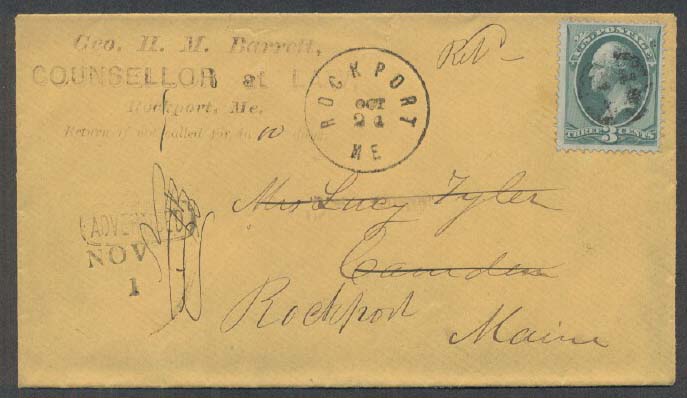 Geo. H. M. Barrett,
COUNSELLOR at LAW
Rockport, Me.
Return if not called for in 10 days.
ROCKPORT
OCT
ME
U.S. POSTAGE
THREE 3 CENTS
ADVERTISED
NOV
1
Mrs Lucy Tyler
Camden
Rockport
Maine